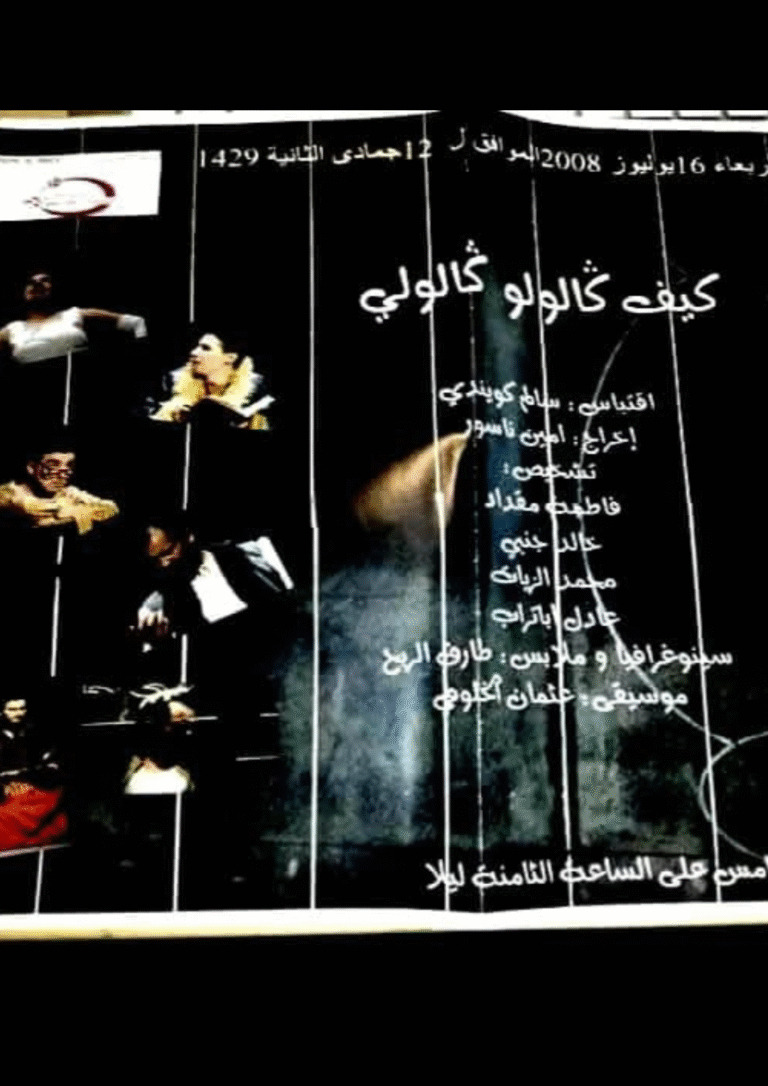 ربعاء 16 يوليوز 2008 الموافق ل 12 جمادى الثانية 1429
كيف ڭالولو ڭالولي
اقتباس : سالم كويندي
إخراج : امين ناسور
تشخيص :
فاطمة مقداد
خالد جنبي
محمد الزيات
عادل اباتراب
سينوغرافيا و ملابس : طارق الربح
موسيقى : عثمان
امس على الساعة الثامنة ليلا